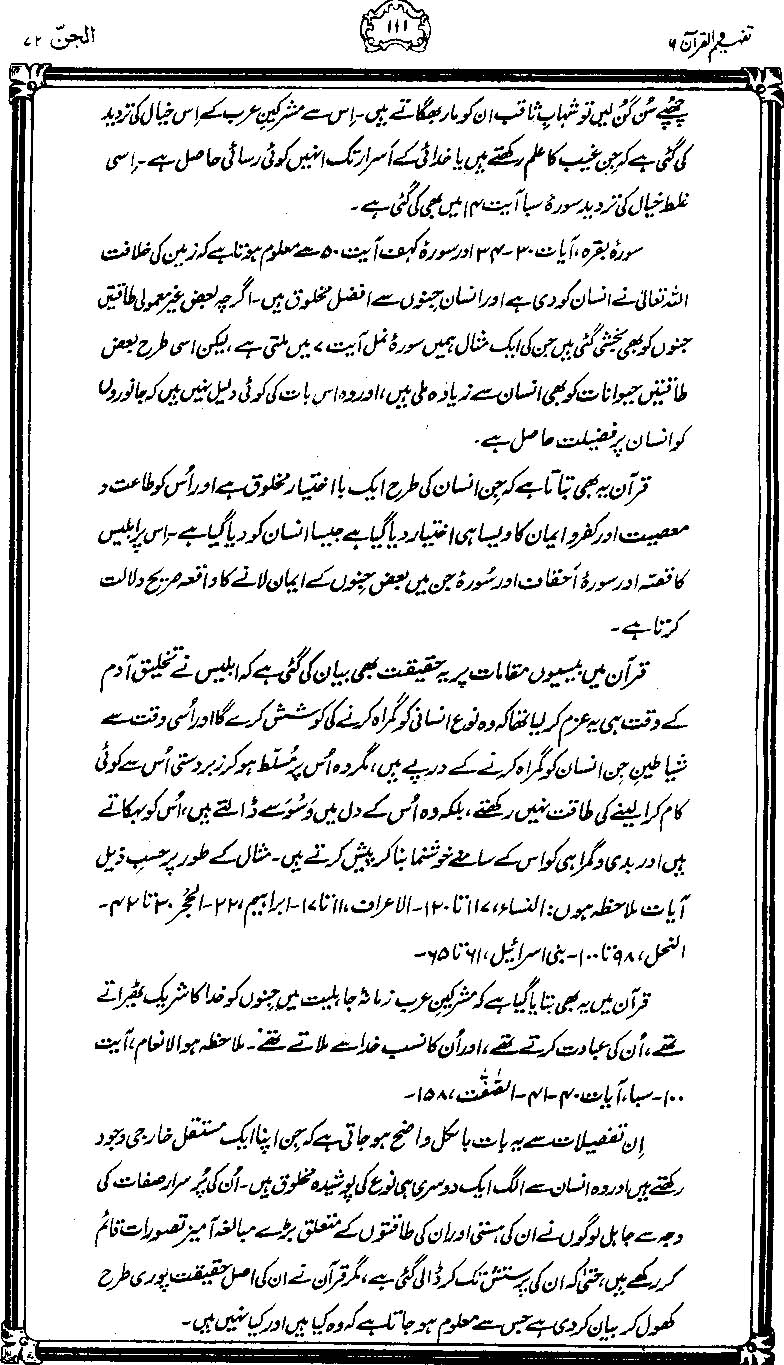 تفہیم القرآن ۶
۱۱۱
الجنّ ۷۲
چھُپے سُن گُن لیں تو شہابِ ثاقب ان کو مار بھگاتے ہیں۔ اِس سے مشرکینِ عرب کے اس خیال کی تردید
کی گئی ہے کہ جِن غیب کا علم رکھتے ہیں یا خدائی کے اَسرار تک انہیں کوئی رسائی حاصل ہے۔ اِسی
غلط خیال کی تردید سورۂ سبا آیت ۱۴ میں بھی کی گئی ہے۔
سورۂ بقرہ، آیات ۳۰-۳۴ اور سورۂ کہف آیت ۵۰ سے معلوم ہوتا ہے کہ زمین کی خلافت
اللہ تعالیٰ نے انسان کو دی ہے اور انسان جِنوں سے افضل مخلوق ہیں۔ اگرچہ بعض غیر معمولی طاقتیں
جنوں کو بھی بخشی گئی ہیں جن کی ایک مثال ہمیں سورۂ نمل آیت ۷ میں ملتی ہے، لیکن اسی طرح بعض
طاقتیں حیوانات کو بھی انسان سے زیادہ ملی ہیں، اور وہ اس بات کی کوئی دلیل نہیں ہیں کہ جانوروں
کو انسان پر فضیلت حاصل ہے۔
قرآن یہ بھی بتاتا ہے کہ جِن انسان کی طرح ایک با اختیار مخلوق ہے اور اُس کو طاعت و
معصیت اور کفر و ایمان کا ویسا ہی اختیار دیا گیا ہے جیسا انسان کو دیا گیا ہے۔ اِس پر ابلیس
کا قصّہ اور سورۂ اَحقاف اور سُورۂ جن میں بعض جِنوں کے ایمان لانے کا واقعہ صریح دلالت
کرتا ہے۔
قرآن میں بیسیوں مقامات پر یہ حقیقت بھی بیان کی گئی ہے کہ ابلیس نے تخلیقِ آدم
کے وقت ہی یہ عزم کر لیا تھا کہ وہ نوعِ انسانی کو گمراہ کرنے کی کوشش کرے گا اور اُسی وقت سے
شیاطینِ جِن انسان کو گمراہ کرنے کے درپے ہیں، مگر وہ اُس پر مُسلّط ہو کر زبردستی اُس سے کوئی
کام کرا لینے کی طاقت نہیں رکھتے، بلکہ وہ اُس کے دل میں وَسْوَسے ڈالتے ہیں، اُس کو بہکاتے
ہیں اور بدی و گمراہی کو اس کے سامنے خوشنما بنا کر پیش کرتے ہیں۔ مثال کے طور پر حسبِ ذیل
آیات ملاحظہ ہوں: النساء، ۱۱۷ تا ۱۲۰۔ الاعراف، ۱۱ تا ۱۷۔ ابراہیم، ۲۲۔ الحِجْر ۳۰ تا ۴۲۔
النحل، ۹۸ تا ۱۰۰۔ بنی اسرائیل، ۶۱ تا ۶۵۔
قرآن میں یہ بھی بتایا گیا ہے کہ مشرکینِ عرب زمانۂ جاہلیت میں جِنوں کو خدا کا شریک ٹھیراتے
تھے، اُن کی عبادت کرتے تھے، اور اُن کا نسب خدا سے ملاتے تھے۔ ملاحظہ ہو الانعام، آیت
۱۰۰۔ سبا، آیات ۴۰-۴۱۔ الصّٰفّٰت، ۱۵۸۔
اِن تفصیلات سے یہ بات بالکل واضح ہو جاتی ہے کہ جِن اپنا ایک مستقل خارجی وجود
رکھتے ہیں اور وہ انسان سے الگ ایک دوسری ہی نوع کی پوشیدہ مخلوق ہیں۔ اُن کی پُر سرار صفات کی
وجہ سے جاہل لوگوں نے ان کی ہستی اور ان کی طاقتوں کے متعلق بڑے مبالغہ آمیز تصورات قائم
کر رکھے ہیں، حتیٰ کہ ان کی پرستش تک کر ڈالی گئی ہے، مگر قرآن نے ان کی اصل حقیقت پوری طرح
کھول کر بیان کر دی ہے جس سے معلوم ہو جاتا ہے کہ وہ کیا ہیں اور کیا نہیں ہیں۔